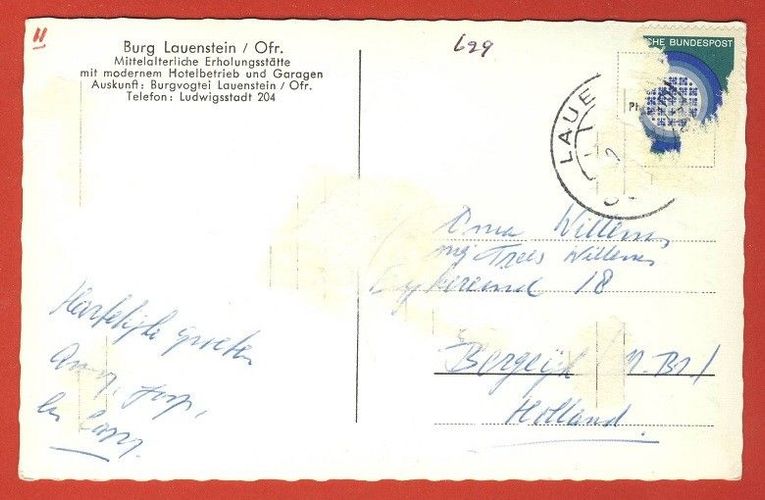 Burg Lauenstein / Ofr.
Mittelalterliche Erholungsstätte
mit modernem Hotelbetrieb und Garagen
Auskunft: Burgvogtei Lauenstein / Ofr.
Telefon: Ludwigsstadt 204
629
CHE BUNDESPOST
LAUE
Oma Willems
Trees Willems
18
Bergeijk (N.Br.)
Holland.
Hartelijke groeten